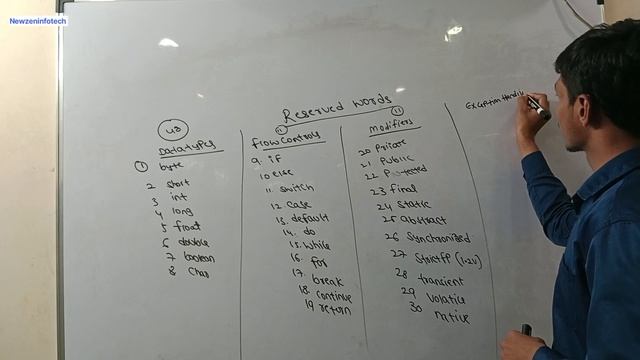 Newzeninfotech
Reserved words
48
Datatypes
1 byte
2 short
3 int
4 long
5 float
6 double
7 boolean
8 Char
11
Flow Controls
9. if
10 else
11. Switch
12. Case
13. default
14. do
15. while
16. for
17. break
18. Continue
19 return
11
Modifiers
20 Private
21 Public
22 Protected
23 final
24 Static
25 abstract
26 Synchronized
27 Strictfp (1.2v)
28 transient
29 Volatile
30 native
Exception Handli